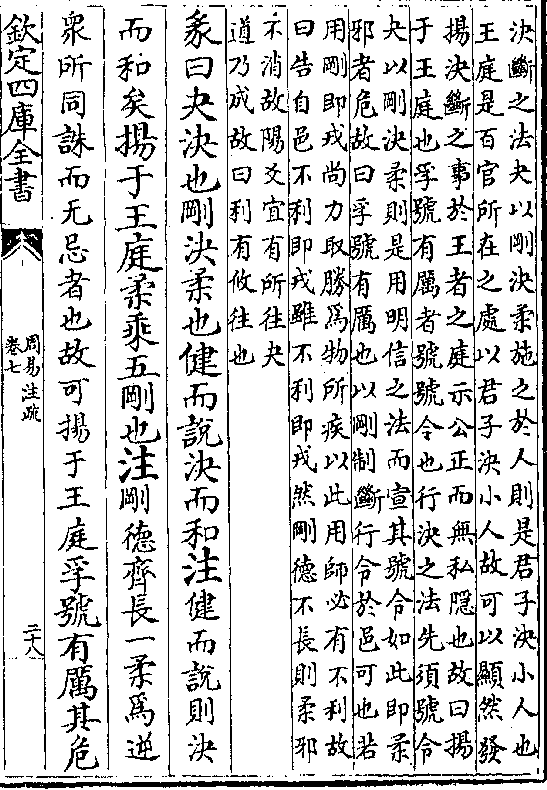 決斷之法夬以剛決柔施之於人則是君子決小人也
王庭是百官所在之處以君子決小人故可以顯然發
揚決斷之事於王者之庭示公正而無私隱也故曰揚
于王庭也孚號有厲者號號令也行決之法先須號令
夬以剛決柔則是用明信之法而宣其號令如此即柔
邪者危故曰孚號有厲也以剛制斷行令於邑可也若
用剛即戎尚力取勝爲物所疾以此用師必有不利故
曰告自邑不利即戎雖不利即戎然剛德不長則柔邪
不消故陽爻宜有所往夬
道乃成故曰利有攸往也
彖曰夬決也剛決柔也健而說決而和注健而說則決
而和矣揚于王庭柔乘五剛也注剛德齊長一柔爲逆
衆所同誅而无忌者也故可揚于王庭孚號有厲其危
欽定四庫全書
周易注疏
卷七
三十八